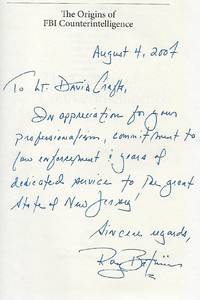 The Origins of
FBI Counterintelligence
August 4, 2007
To Lt. David Crafts,
In appreciation for your
professionalism, commitment to
law enforcement & years of
dedicated service to the great
State of New Jersey!
Sincere regards,
Ray